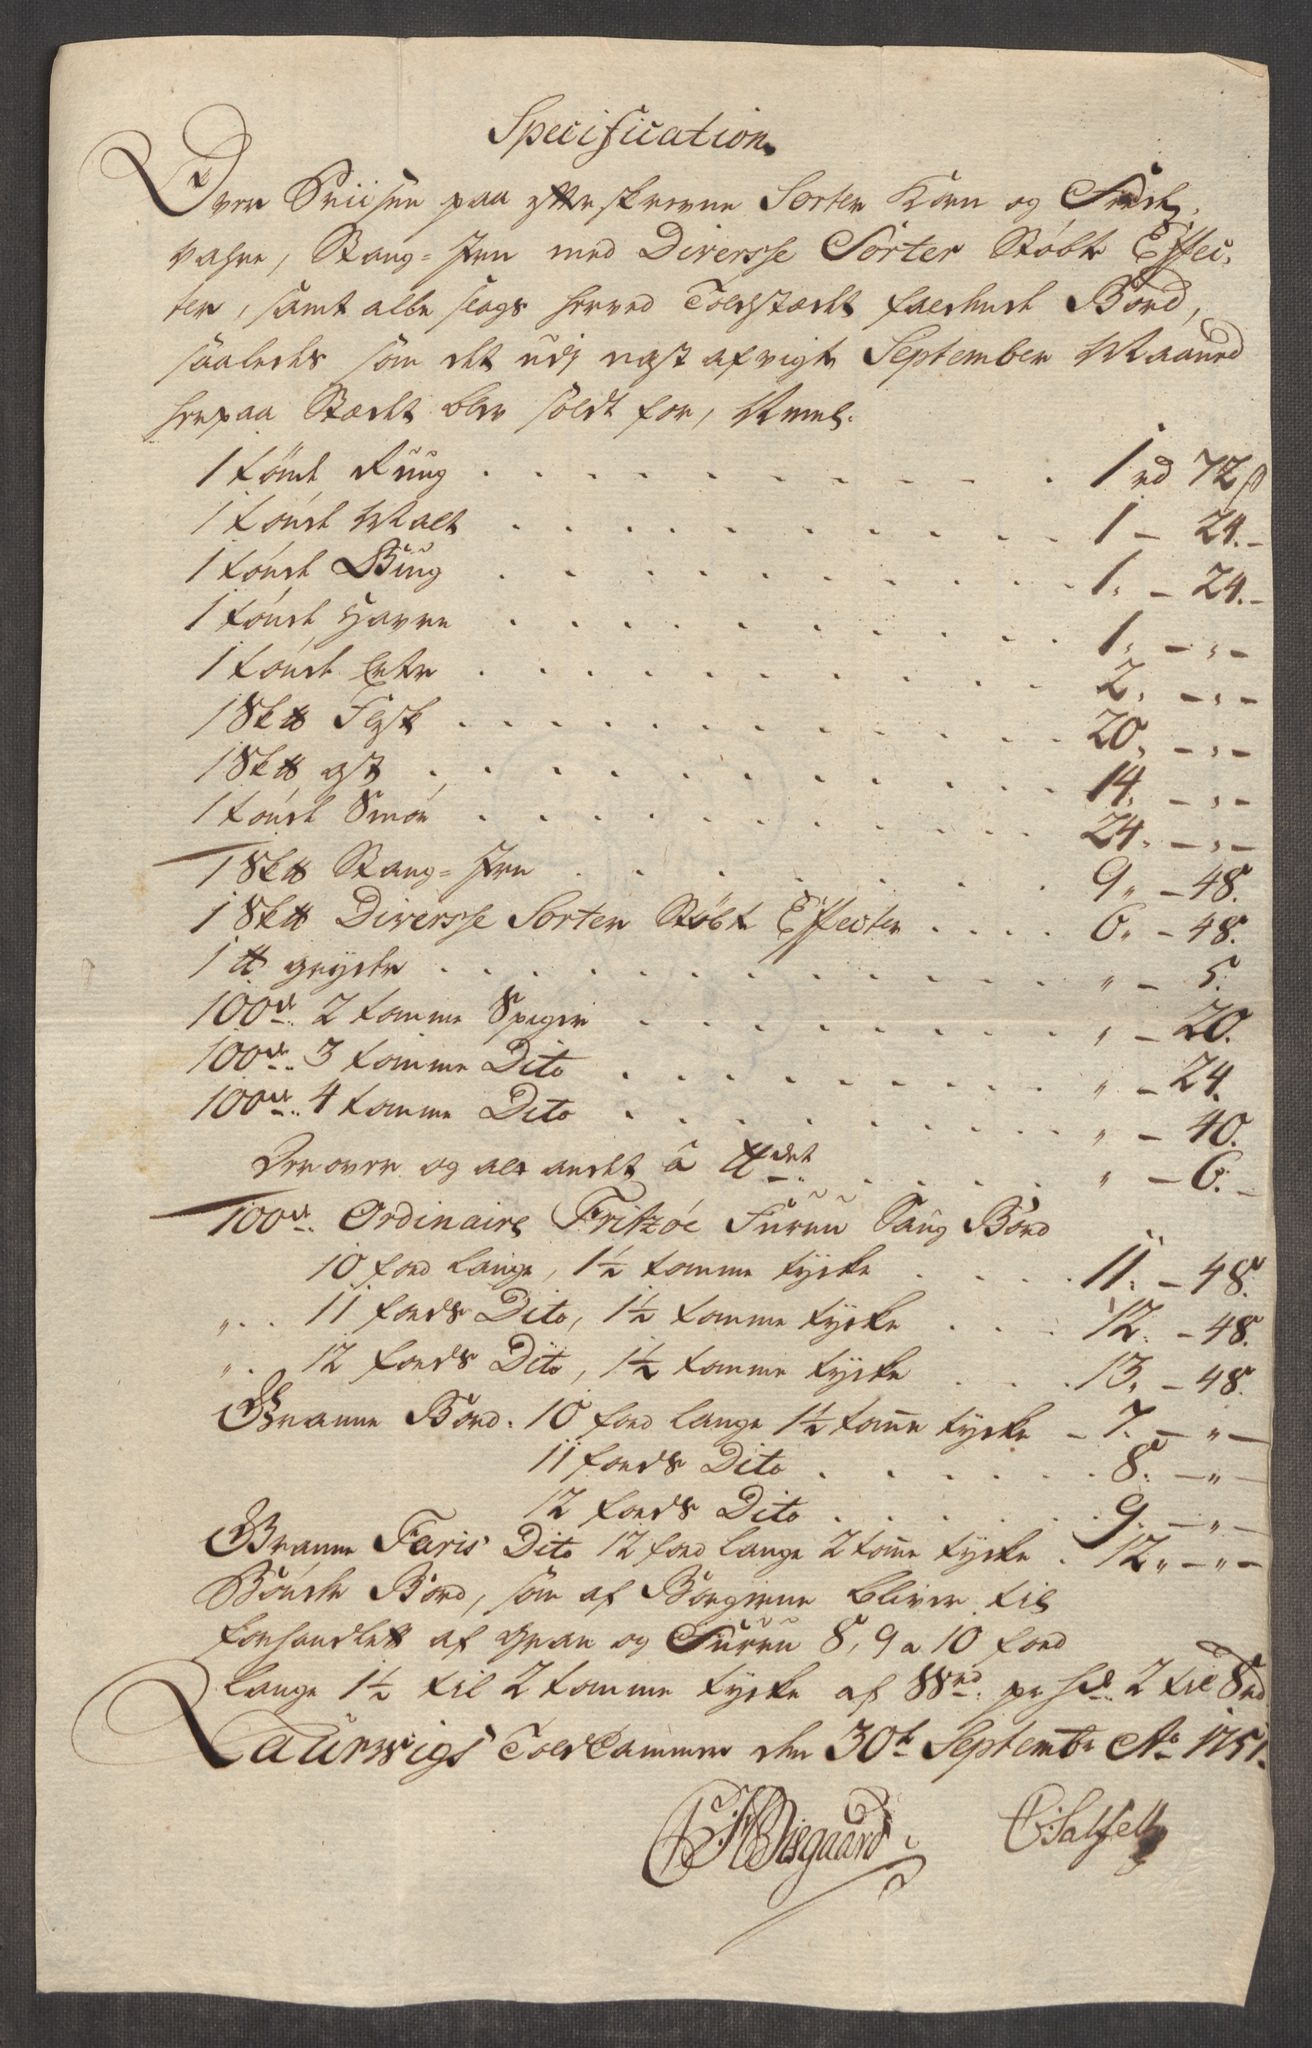 Specification
Over Priisen paa efterskrevne Sorter Korn og Fede,
vahre, Stang-Jern med Diversse Sorter Støbte Effec,
ter, samt alle slags herved Toldstædet faldende Bord,
saaledes som det udj nest afvigte September Maaned
herpaa Stædet blev soldt for, Neml:
1 tønde Ruug . . . . . . . . . . 1 rd 72 ß
1 tønde Malt . . . . . . . . . . 1 - 24. -
1 tønde Biug . . . . . . . . . . 1. - 24. -
1 tønde Havre . . . . . . . . . . 1. - " -
1 tønde Erter . . . . . . . . . . 2. - " -
1 Sk℔ Flesk . . . . . . . . . . 20. - " -
1 Sk℔ ost . . . . . . . . . . 14. - " -
1 tønde Smør . . . . . . . . . . 24. - " -
1 Sk℔ Stang-Jern . . . . . . . . 9. - 48.
1 Sk℔ Diversse Sorter Støbte Effecter . . . . 6. - 48.
1 ℔ gryder . . . . . . . . . . " - 5.
100de 2 tomme Spiger . . . . . . . . " - 20.
100de 3 tomme Dito . . . . . . . . " - 24.
100de 4 tomme Dito . . . . . . . . " - 40.
Derover og alt andet â ℔det . . . . . " - 6. -
100de Ordinaire Fritzøe Furru Saug Bord
10 fod lange, 1½ tomme tycke . . . . 11. - 48.
" . . 11 fods Dito, 1½ tomme tycke . . . 12. - 48.
" . . 12 fods Dito, 1½ tomme tycke . . . 13. - 48.
Granne Bord. 10 fod lange 1½ tom̅e tycke - 7. - " -
11 fods Dito . . . . . . 8. - " -
12 fods Dito . . . . . . 9. - " -
Granne Faris Dito 12 fod lange 2 tom̅e tycke . 12. - " -
Bønder Bord, som af Borgerne bliver til
forhandlett af gran og Furru 8, 9 a 10 fod
lange 1½ til 2 tomme tycke af 88rd: pr hd: 2 til 8 rd
Laurwigs Told Cammer den 30te Septembr Ao 1751.
Bisgaard C: Salfelt